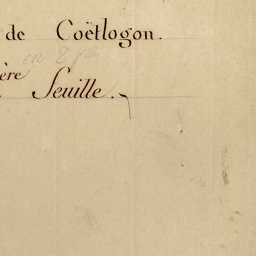 de Coëtlogon.
ère Feuille.